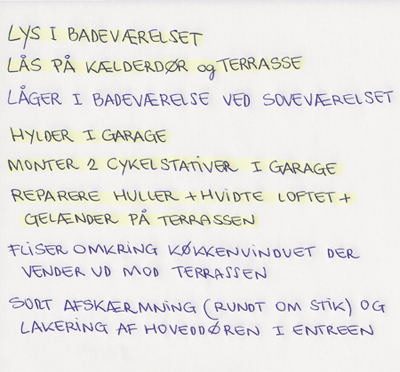 LYS I BADEVÆRELSET
LÅS PÅ KÆLDERDØR og TERRASSE
LÅGER I BADEVÆRELSE VED SOVEVÆRELSET
HYLDER I GARAGE
MONTER 2 CYKELSTATIVER I GARAGE
REPARERE HULLER + HVIDTE LOFTET +
GELÆNDER PÅ TERRASSEN
FLISER OMKRING KØKKENVINDUET DER
VENDER UD MOD TERRASSEN
SORT AFSKÆRMNING (RUNDT OM STIK) OG
LAKERING AF HOVEDDØREN I ENTREEN